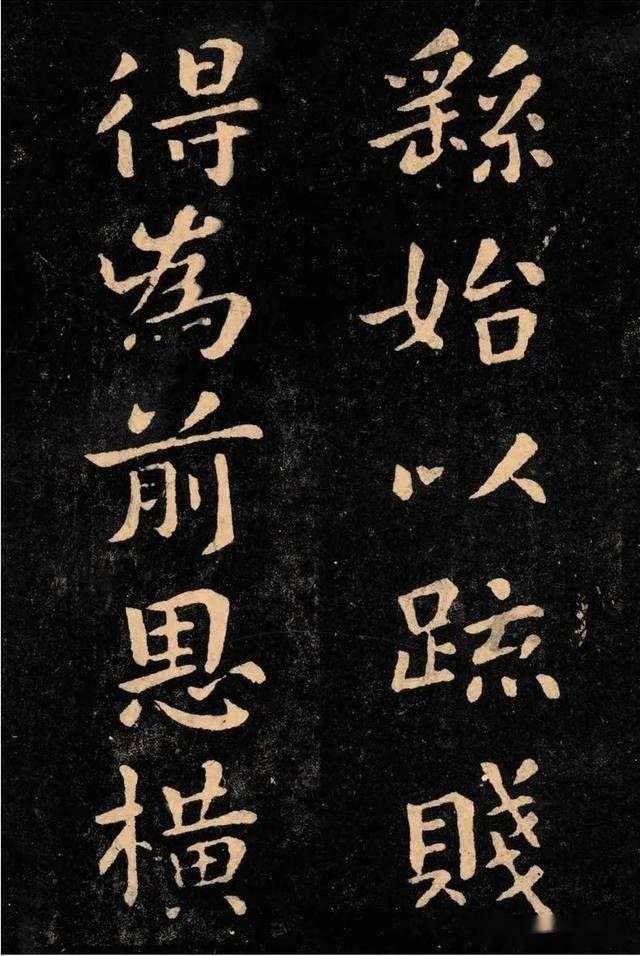 繇始以疏賤
得為前恩橫